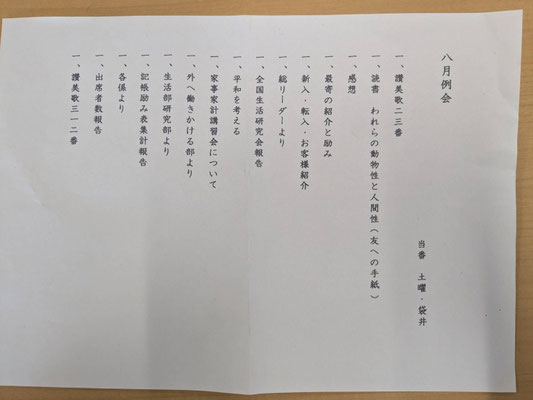 八月例会
当番　土曜・袋井
一、讃美歌二三番
一、読書　われらの動物性と人間性（友への手紙）
一、感想
一、最寄の紹介と励み
一、新入・転入・お客様紹介
一、総リーダーより
一、全国生活研究会報告
一、平和を考える
一、家事家計講習会について
一、外へ働きかける部より
一、生活部研究部より
一、記帳励み表集計報告
一、各係より
一、出席者数報告
一、讃美歌三一二番